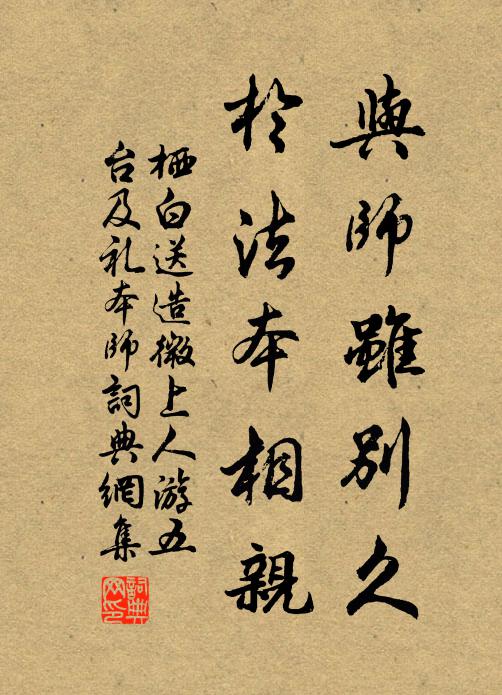 與師雖別久
於法本相親
栖白送造微上人游五
台及礼本師詞典網集
詞典
网印